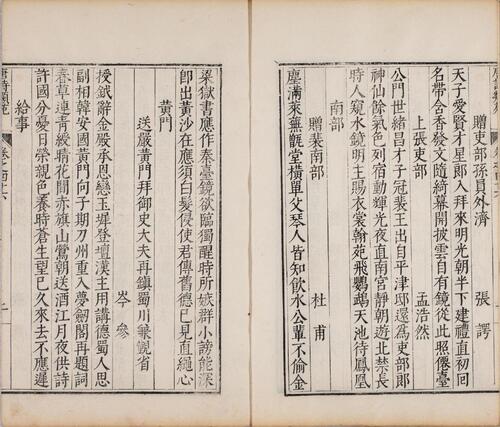 贈吏部孫員外濟　張諤
天子愛賢才星郎入拜來明光朝半下建禮直初回
名帶含香發文隨綺幕開披雲自有鏡從此照僊臺
上張吏部　孟浩然
公門世緒昌才子冠裴王出自平津邸還為吏部郎
神仙餘氣色列宿動輝光夜直南宮靜朝遊北禁長
時人窺水鏡明主賜衣裳翰苑飛鸚鵡天池待鳳凰
南部
贈裴南部　杜甫
塵滿萊蕪甑堂橫單父琴人皆知飲水公輩不偷金
梁獄書應作秦臺鏡欲臨獨醒時所嫉群小謗能深
即出黃沙在應須白髮侵使君傳舊德已見直繩心
黃門
送嚴黃門拜御史大夫再鎮蜀川兼覲省
岑參
授鉞辭金殿承恩戀玉墀登壇漢主用講德蜀人思
副相韓安國黃門向子期刀州重入夢劍閣再題詞
春草連青綬晴花間赤旗山鶯朝送酒江月夜供詩
許國分憂日榮親色養時蒼生望已久來去不應遲
給事